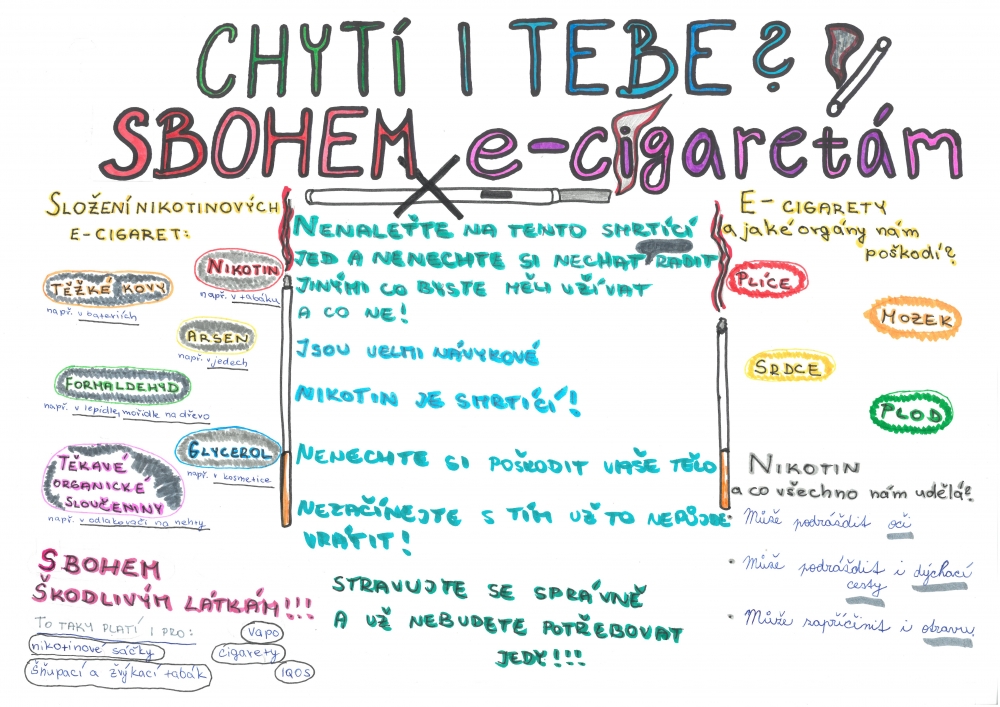 CHYTÍ I TEBE?
SBOHEM e-cigaretám
SLOŽENÍ NIKOTINOVÝCH
E-CIGARET:
NIKOTIN
např. v tabáku
TĚŽKÉ KOVY
např. v bateriích
ARSEN
např. v jedech
FORMALDEHYD
např. v lepidle, mořidle na dřevo
GLYCEROL
např. v kosmetice
TĚKAVÉ
ORGANICKÉ
SLOUČENINY
např. v odlakovači na nehty
SBOHEM
ŠKODLIVÝM LÁTKÁM!!!
TO TAKY PLATÍ I PRO:
VAPO
nikotinové sáčky
cigarety
šňupací a žvýkací tabák
IQOS
NENALEŤTE NA TENTO SMRTÍCÍ
JED A NENECHTE SI NECHAT RADIT
JINÝMI CO BYSTE MĚLI UŽÍVAT
A CO NE!
JSOU VELMI NÁVYKOVÉ
NIKOTIN JE SMRTÍCÍ!
NENECHTE SI POŠKODIT VAŠE TĚLO
NEZAČÍNEJTE S TÍM UŽ TO NEPŮJDE
VRÁTIT!
STRAVUJTE SE SPRÁVNĚ
A UŽ NEBUDETE POTŘEBOVAT
JEDY!!!
E-CIGARETY
a jaké orgány nám
poškodí?
PLÍCE
MOZEK
SRDCE
PLOD
NIKOTIN
a co všechno nám udělá?
• Může podráždit oči
• Může podráždit i dýchací
cesty
• Může zapříčinit i otravu.